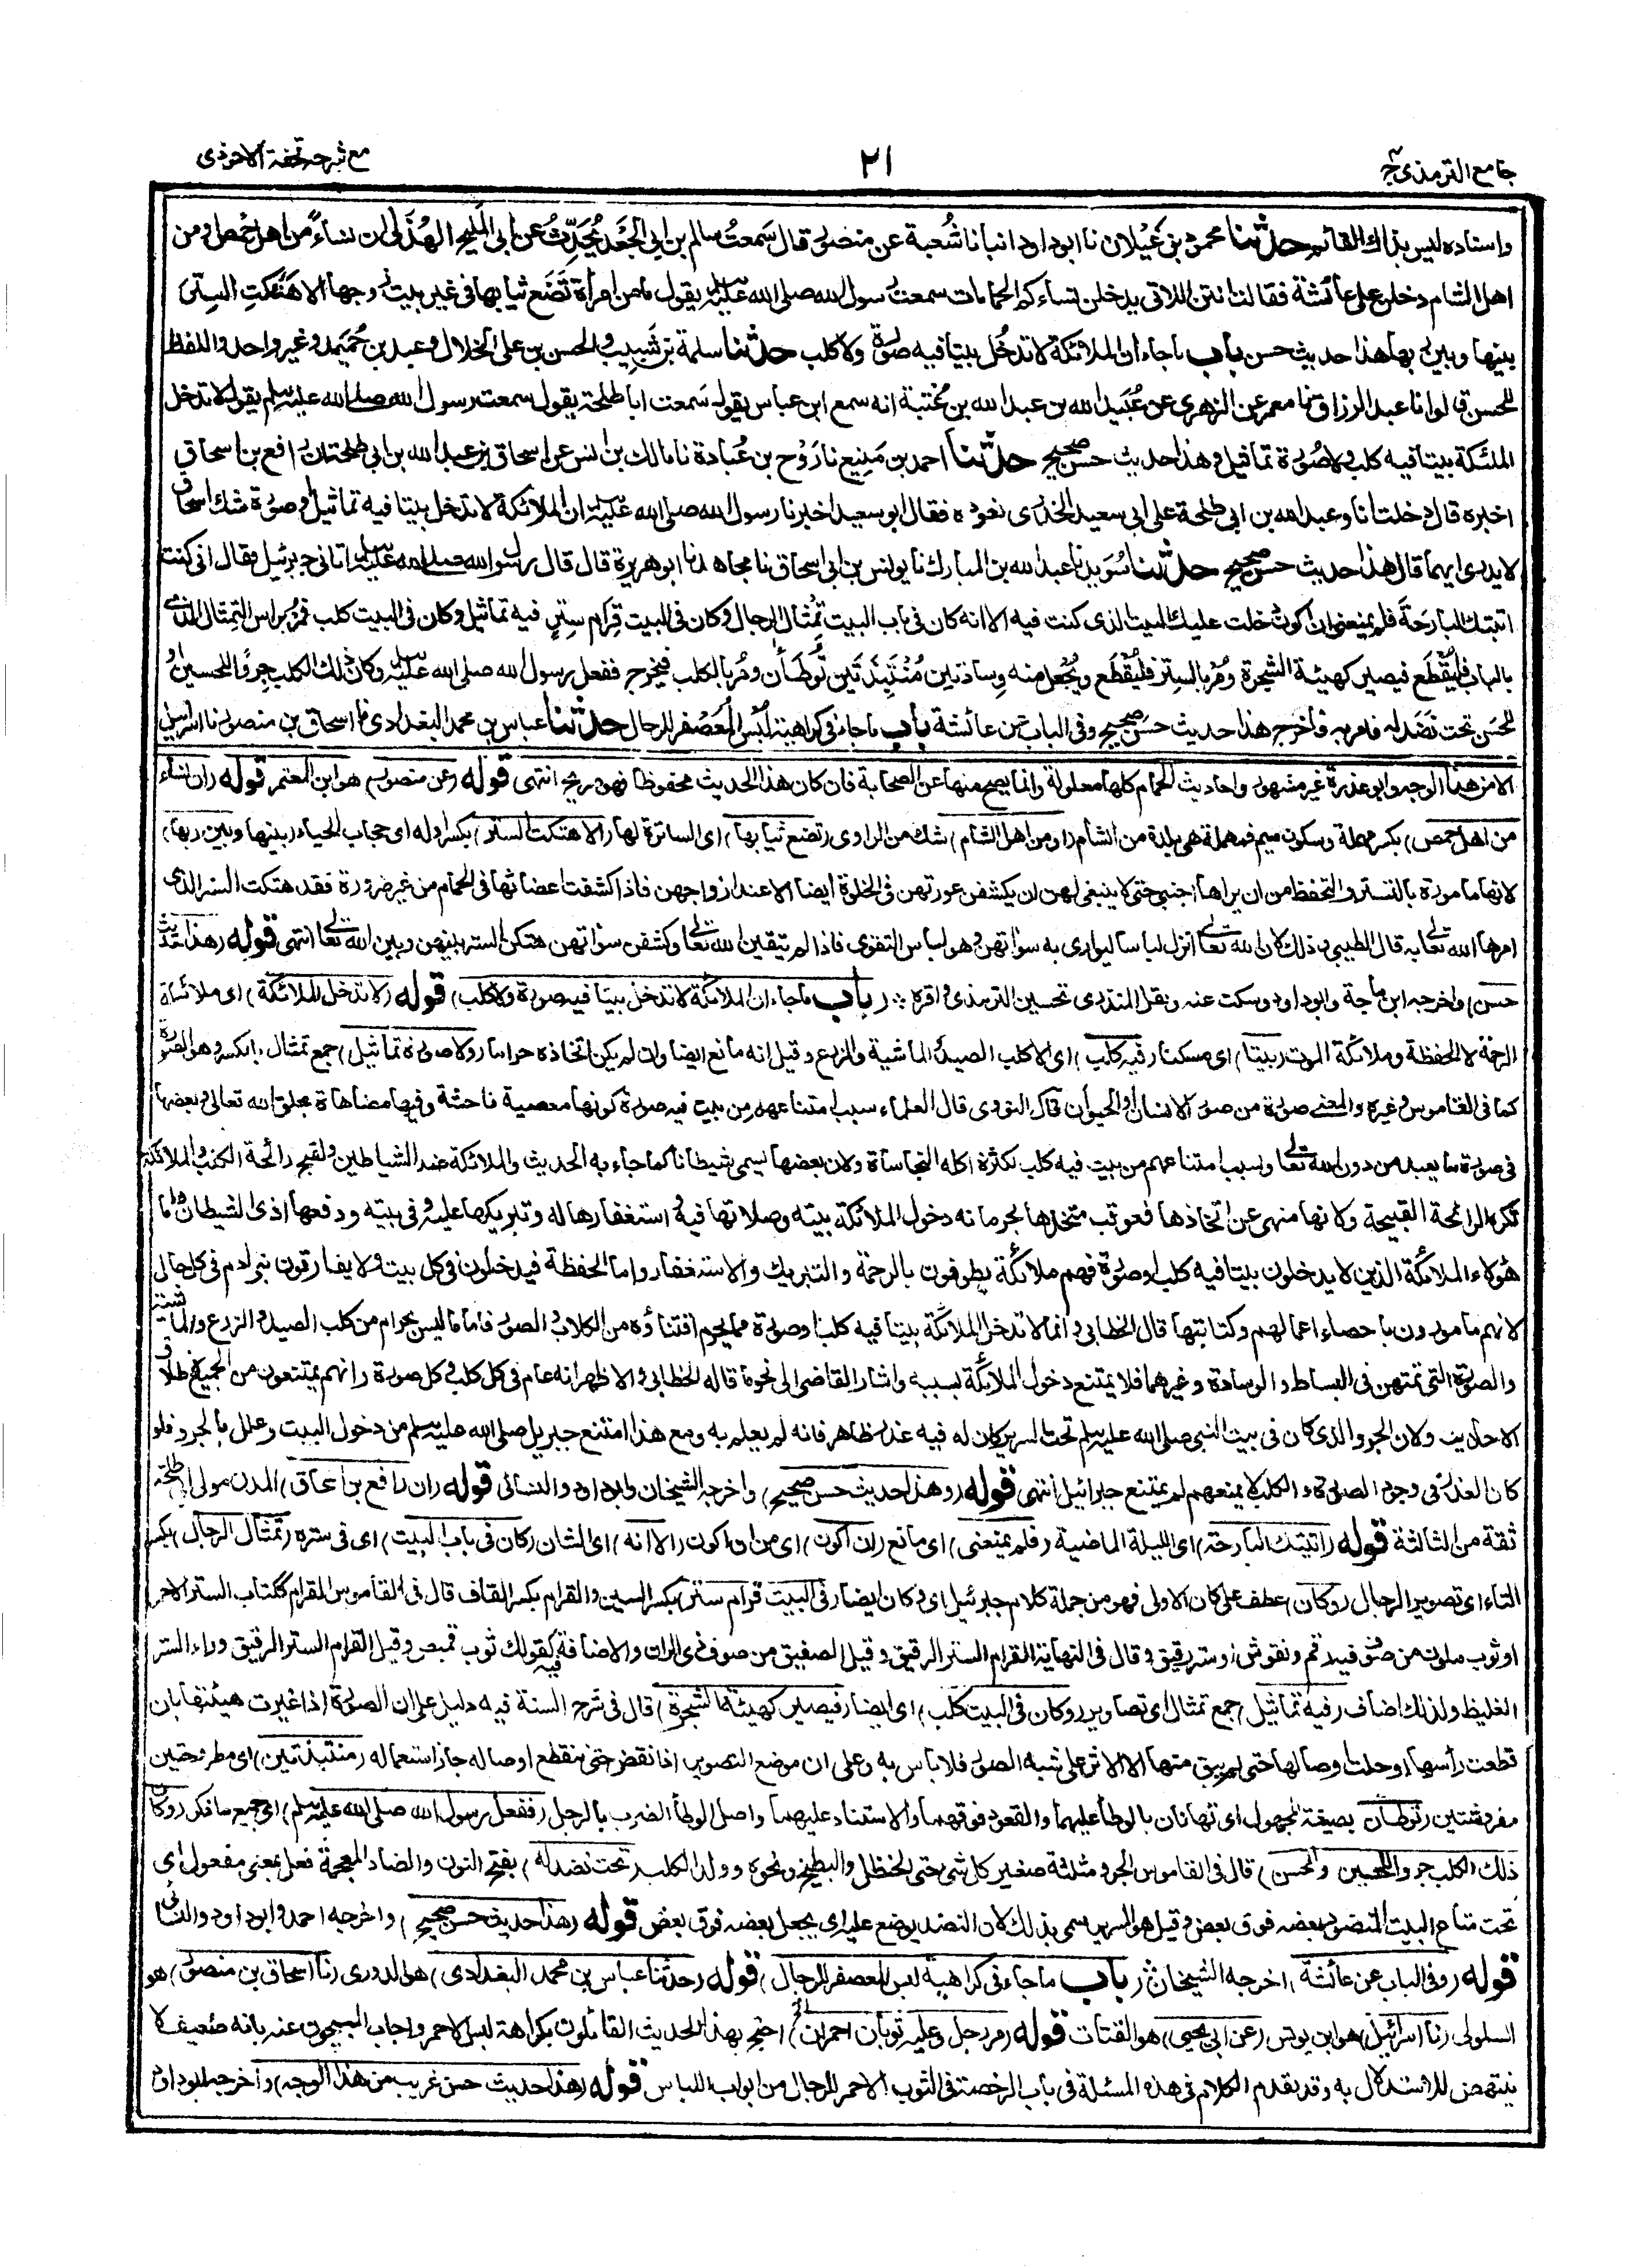 جامع الترمذی ج۴
۲۱
مع شرحہ تحفة الاحوذی
واسناده ليس بذاك القائم حدثنا محمود بن غيلان نا ابو داود انبانا شعبة عن منصور قال سمعت سالم بن ابي الجعد يحدث عن ابي المليح الهذلي ان نساء من اهل حمص او من
اهل الشام دخلن على عائشة فقالت انتن اللاتي يدخلن نساءكن الحمامات سمعت رسول الله صلى الله عليه وسلم يقول ما من امرأة تضع ثيابها في غير بيت زوجها الا هتكت الستر
بينها وبين ربها هذا حديث حسن باب ما جاء ان الملائكة لا تدخل بيتا فيه صورة ولا كلب حدثنا سلمة بن شبيب والحسن بن علي الخلال وعبد بن حميد وغير واحد واللفظ
للحسن قالوا نا عبد الرزاق نا معمر عن الزهري عن عبيد الله بن عبد الله بن عتبة انه سمع ابن عباس يقول سمعت ابا طلحة يقول سمعت رسول الله صلى الله عليه وسلم يقول لا تدخل
الملئكة بيتا فيه كلب ولا صورة تماثيل وهذا حديث حسن صحيح حدثنا احمد بن منيع نا روح بن عبادة نا مالك بن انس عن اسحاق بن عبد الله بن ابي طلحة ان رافع بن اسحاق
اخبره قال دخلت انا وعبد الله بن ابي طلحة على ابي سعيد الخدري نعوده فقال ابو سعيد اخبرنا رسول الله صلى الله عليه وسلم ان الملائكة لا تدخل بيتا فيه تماثيل او صورة شك اسحاق
لا يدري ايهما قال هذا حديث حسن صحيح حدثنا سويد نا عبد الله بن المبارك نا يونس بن ابي اسحاق نا مجاهد نا ابو هريرة قال قال رسول الله صلى الله عليه وسلم اتاني جبرئيل فقال اني كنت
اتيتك البارحة فلم يمنعني ان اكون دخلت عليك البيت الذي كنت فيه الا انه كان في باب البيت تمثال الرجال وكان في البيت قرام ستر فيه تماثيل وكان في البيت كلب فمر براس التمثال الذي
بالباب فليقطع فيصير كهيئة الشجرة ومر بالستر فليقطع ويجعل منه وسادتين منتبذتين توطأن ومر بالكلب فيخرج ففعل رسول الله صلى الله عليه وسلم وكان ذلك الكلب جروا للحسين او
للحسن تحت نضد له فامر به فاخرج هذا حديث حسن صحيح وفي الباب عن عائشة باب ما جاء في كراهية لبس المعصفر للرجال حدثنا عباس بن محمد البغدادي نا اسحاق بن منصور نا اسرائيل
الا من هذا الوجه وابو عذرة غير مشهور واحاديث الحمام كلها معلولة وانما يصح منها عن الصحابة فان كان هذا الحديث محفوظا فهو صريح انتهى قوله (عن منصور) هو ابن المعتمر قوله (ان نساء
من اهل حمص) بكسر مهملة وسكون ميم فمهملة هي بلدة من الشام (او من اهل الشام) شك من الراوي (تضع ثيابها) اي الساترة لها (الا هتكت الستر) بكسر اوله اي حجاب الحياء (بينها وبين ربها)
لانها مامورة بالتستر والتحفظ من ان يراها اجنبي حتى لا ينبغي لهن ان يكشفن عورتهن في الخلوة ايضا الا عند ازواجهن فاذا كشفت اعضائها في الحمام من غير ضرورة فقد هتكت الستر الذي
امرها الله تعالى به قال الطيبي وذلك لان الله تعالى انزل لباسا ليواري به سوأتهن وهو لباس التقوى فاذا لم يتقين الله تعالى وكشفن سوأتهن هتكن الستر بينهن وبين الله تعالى انتهى قوله (هذا حديث
حسن) واخرجه ابن ماجة وابو داود وسكت عنه ونقل المنذري تحسين الترمذي واقره (باب ما جاء ان الملائكة لا تدخل بيتا فيه صورة ولا كلب) قوله (لا تدخل الملائكة) اي ملائكة
الرحمة لا الحفظة وملائكة الموت (بيتا) اي مسكنا (فيه كلب) اي الا كلب الصيد والماشية والزرع وقيل انه مانع ايضا وان لم يكن اتخاذه حراما (ولا صورة تماثيل) جمع تمثال بالكسر وهو الصورة
كما في القاموس وغيره والمعنى صورة من صور الانسان او الحيوان قال النووي قال العلماء سبب امتناعهم من بيت فيه صورة كونها معصية فاحشة وفيها مضاهاة بخلق الله تعالى وبعضها
في صورة ما يعبد من دون الله تعالى وسبب امتناعهم من بيت فيه كلب لكثرة اكله النجاسات ولان بعضها يسمى شيطانا كما جاء به الحديث والملائكة ضد الشياطين ولقبح رائحة الكلب والملائكة
تكره الرائحة القبيحة ولانها منهي عن اتخاذها فعوقب متخذها بحرمانه دخول الملائكة بيته وصلاتها فيه واستغفارها له وتبريكها عليه وفي بيته ودفعها اذى الشيطان واما
هؤلاء الملائكة الذين لا يدخلون بيتا فيه كلب او صورة فهم ملائكة يطوفون بالرحمة والتبريك والاستغفار واما الحفظة فيدخلون في كل بيت ولا يفارقون بني آدم في كل حال
لانهم مامورون باحصاء اعمالهم وكتابتها قال الخطابي وانما لا تدخل الملائكة بيتا فيه كلب او صورة مما يحرم اقتناؤه من الكلاب والصور فاما ما ليس بحرام من كلب الصيد والزرع والماشية
والصورة التي تمتهن في البساط والوسادة وغيرهما فلا يمتنع دخول الملائكة بسببه واشار القاضي الى نحو ما قاله الخطابي والاظهر انه عام في كل كلب وكل صورة وانهم يمتنعون من الجميع لاطلاق
الاحاديث ولان الجرو الذي كان في بيت النبي صلى الله عليه وسلم تحت السرير كان له فيه عذر ظاهر فانه لم يعلم به ومع هذا امتنع جبريل صلى الله عليه وسلم من دخول البيت وعلل بالجرو فلو
كان العذر في وجود الصورة والكلب لا يمنعهم لم يمتنع جبرائيل انتهى قوله (وهذا حديث حسن صحيح) واخرجه الشيخان وابو داود والنسائي قوله (ان رافع بن اسحاق) المدني مولى ابي طلحة
ثقة من الثالثة قوله (اتيتك البارحة) اي الليلة الماضية (فلم يمنعني) اي مانع (ان اكون) اي من ان اكون (الا انه) اي الشان (كان في باب البيت) اي في ستره (تمثال الرجال) بكسر
التاء اي تصوير الرجال (وكان) عطف على كان الاولى فهو من جملة كلام جبرئيل اي وكان ايضا (في البيت قرام ستر) بكسر السين والقرام بكسر القاف قال في القاموس القرام ككتاب الستر الاحمر
او ثوب ملون من صوف فيه رقم ونقوش او ستر رقيق وقال في النهاية القرام الستر الرقيق وقيل الصفيق من صوف ذي الوان والاضافة فيه كقولك ثوب قميص وقيل القرام الستر الرقيق وراء الستر
الغليظ ولذلك اضاف (فيه تماثيل) جمع تمثال اي تصاوير (وكان في البيت كلب) اي ايضا (فيصير كهيئة الشجرة) قال في شرح السنة فيه دليل على ان الصورة اذا غيرت هيئتها بان
قطعت رأسها او حلت اوصالها حتى لم يبق منها الا الاثر على شبه الصور فلا باس به وعلى ان موضع التصوير اذا نقض حتى تنقطع اوصاله جاز استعماله (منتبذتين) اي مطروحتين
مفروشتين (توطآن) بصيغة المجهول اي تهانان بالوطأ عليهما والقعود فوقهما والاستناد عليهما واصل الوطأ الضرب بالرجل (ففعل رسول الله صلى الله عليه وسلم) اي جميع ما ذكر (وكان
ذلك الكلب جروا للحسين والحسن) قال في القاموس الجرو مثلثة صغير كل شيء حتى الحنظل والبطيخ ونحوه وولد الكلب (تحت نضد له) بفتح النون والضاد المعجمة فعل بمعنى مفعول اي
تحت متاع البيت المنضود بعضه فوق بعض وقيل هو السرير سمي بذلك لان النضد يوضع عليه اي يجعل بعضه فوق بعض قوله (هذا حديث حسن صحيح) واخرجه احمد وابو داود والنسائي
قوله (وفي الباب عن عائشة) اخرجه الشيخان (باب ما جاء في كراهية لبس المعصفر للرجال) قوله (حدثنا عباس بن محمد البغدادي) هو الدوري (نا اسحاق بن منصور) هو
السلولي (نا اسرائيل) هو ابن يونس (عن ابي يحيى) هو القتات قوله (مر رجل وعليه ثوبان احمران الخ) احتج بهذا الحديث القائلون بكراهة لبس الاحمر واجاب المبيحون عنه بانه ضعيف لا
ينتهض للاستدلال به وقد تقدم الكلام في هذه المسئلة في باب الرخصة في الثوب الاحمر للرجال من ابواب اللباس قوله (هذا حديث حسن غريب من هذا الوجه) واخرجه ابو داود